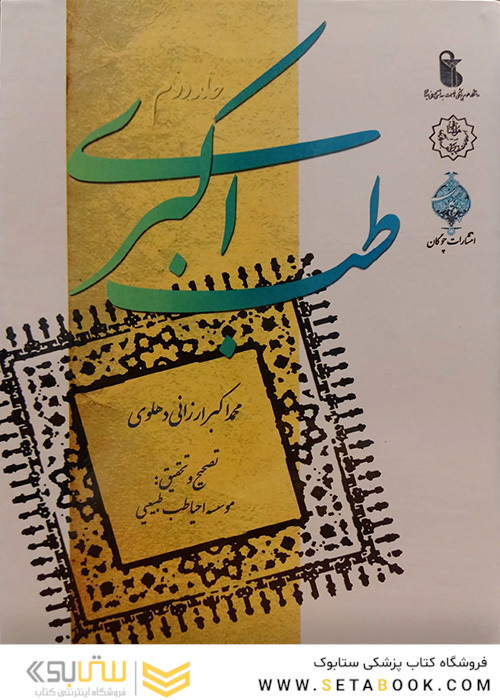 جلد دوم
طب اکبری
انتشارات چوگان
محمد اکبر ارزانی دهلوی
تصحیح و تحقیق:
موسسه احیا طب طبیعی
فروشگاه کتاب پزشکی ستابوک
WWW.SETABOOK.COM
ستابوک
فروشگاه اینترنتی کتاب